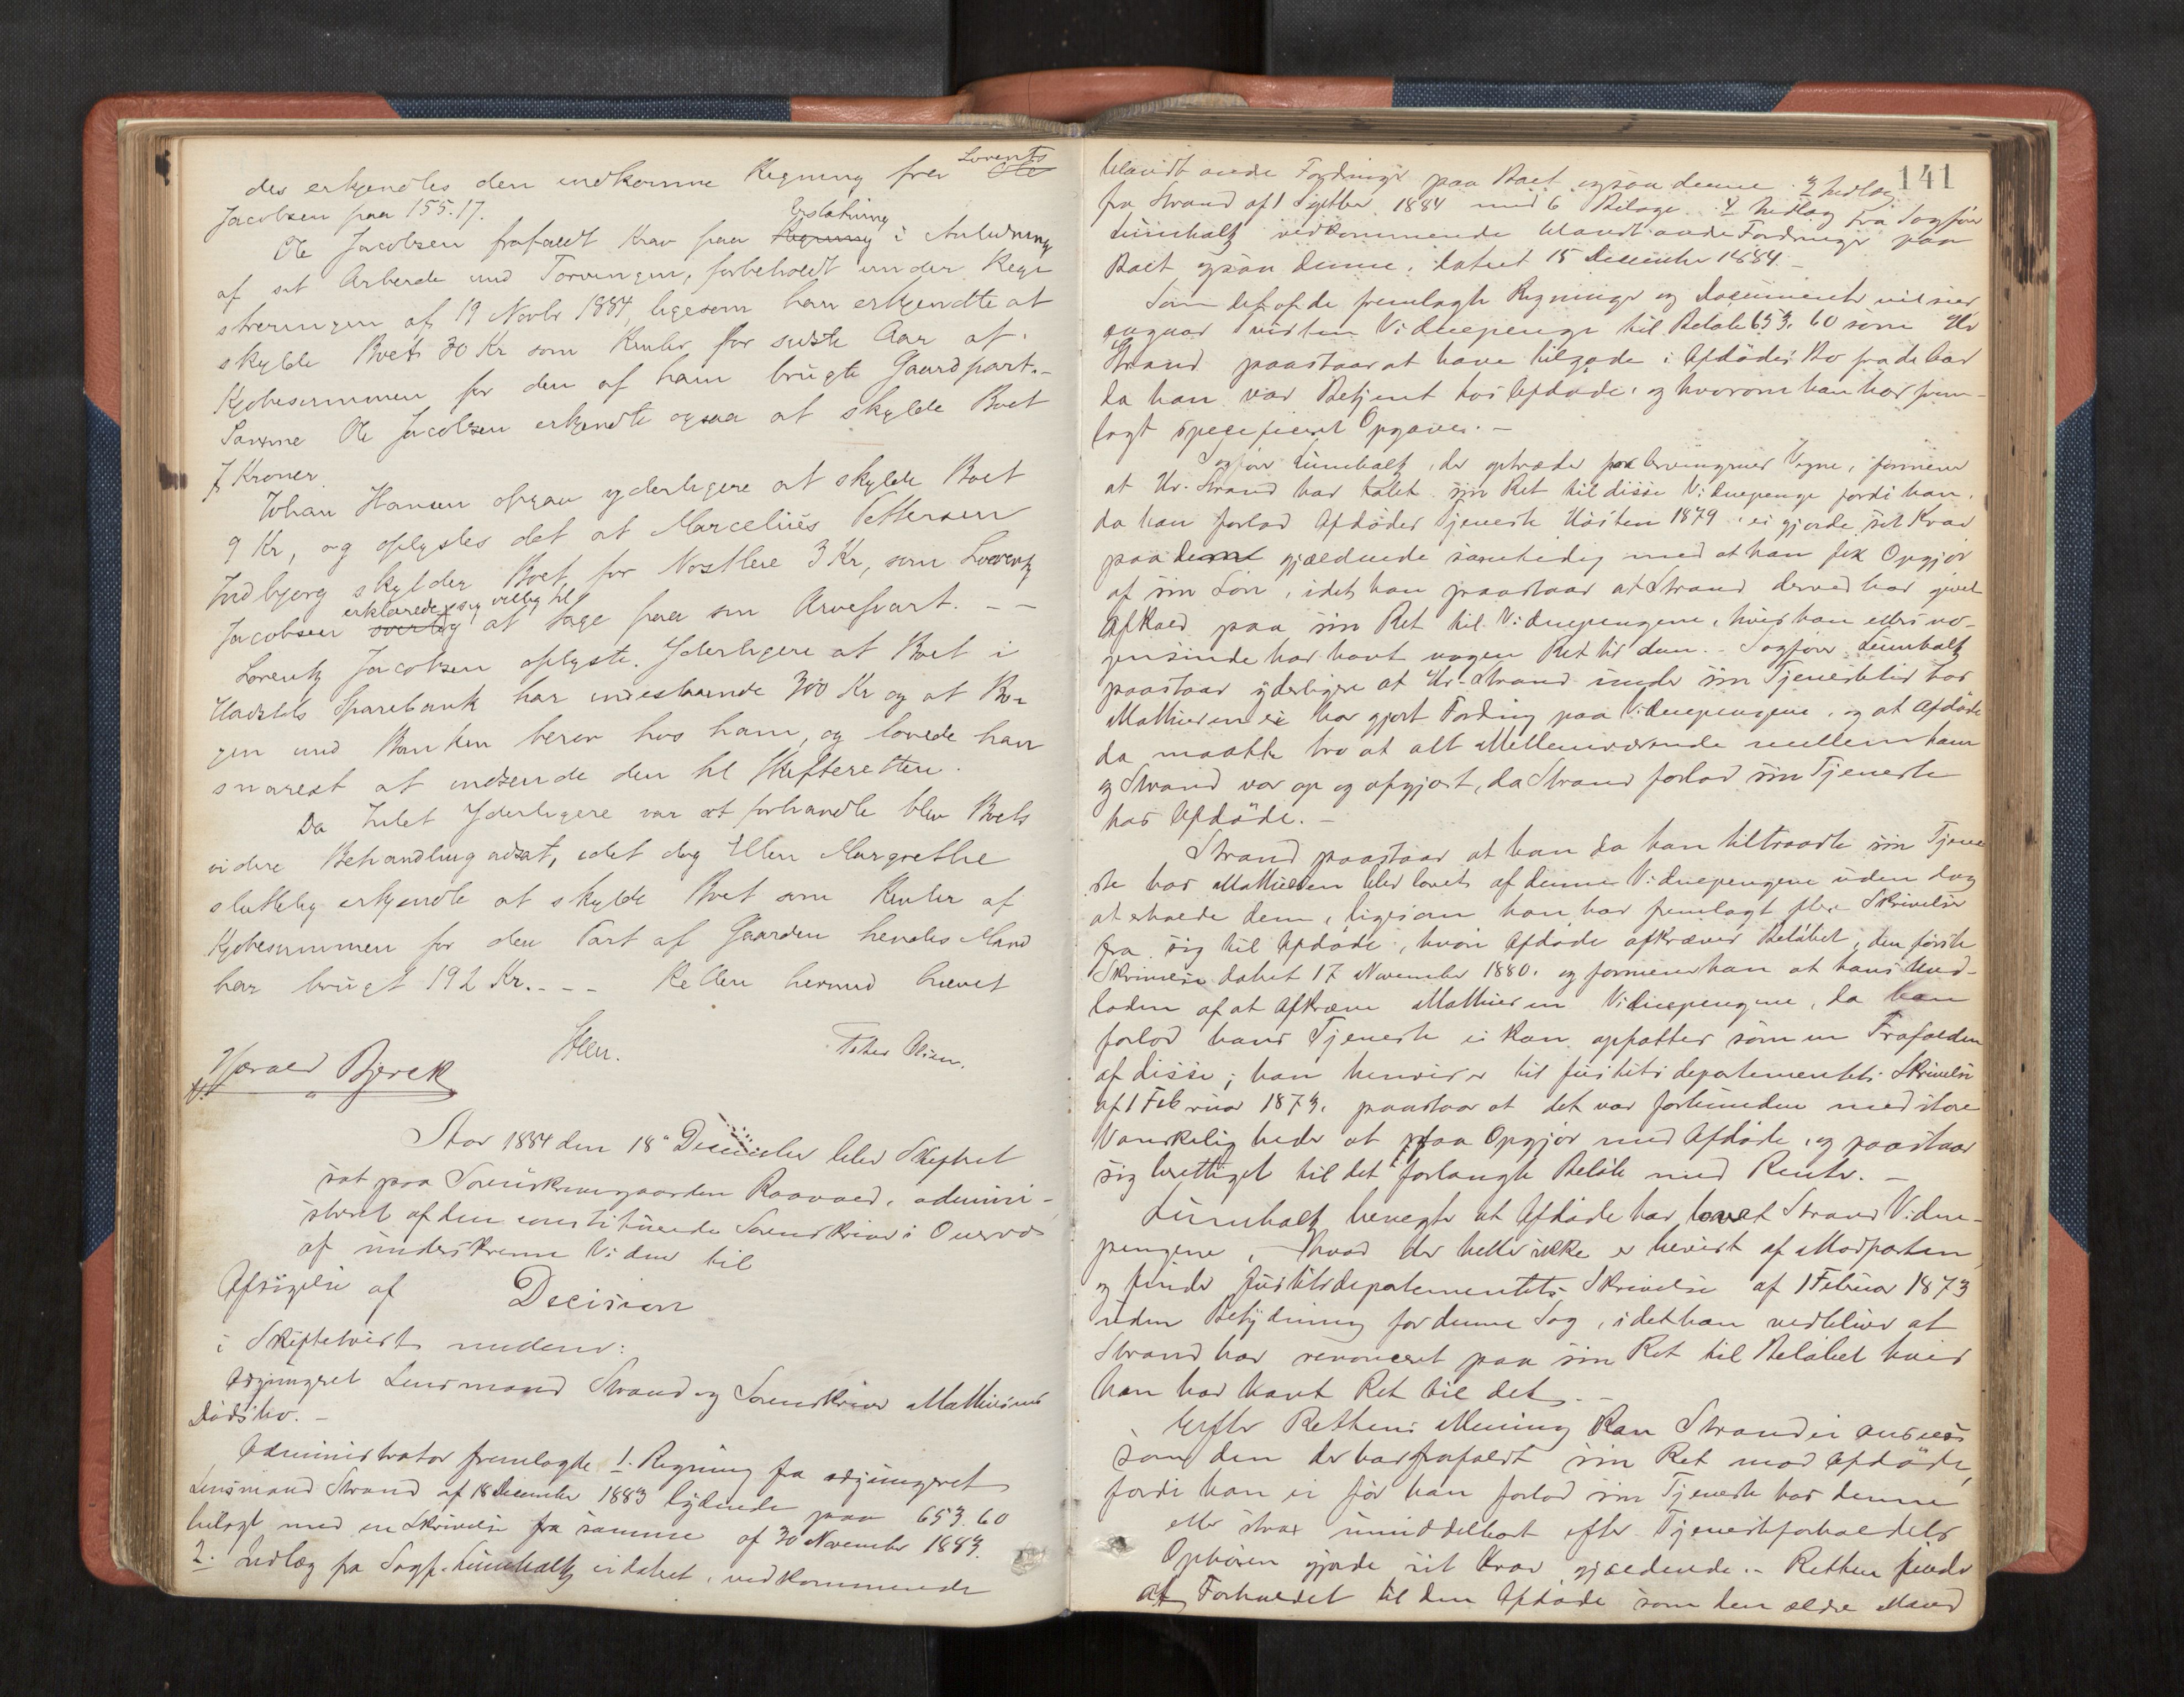 des erkjendtes den indkomne Regning fra Lorents Ole
Jacobsen paa 155.17.
Ole Jacobsen frafaldt Krav paa Regning Erstatning i Anledning
af sit Arbeide med Torvingen, forbeholdt under Regi
streringen af 19 Novbr 1884, ligesom han erkjendte at
skylde Boet 30 Kr som Renter for sidste Aar af
Kjøbesummen for den af ham brugte Gaardpart.-
Samme Ole Jacobsen erkjendte ogsaa at skylde Boet
7 Kroner.
Johan Hansen opgav yderligere at skylde Boet
9 Kr, og oplystes det at Marcelius Pettersen
Indbjorg skylder Boet for 3 Kr, som Lorentz
Jacobsen erklærede sig villig til at tage paa sin Arvepart. - -
Lorentz Jacobsen oplyste Yderligere at Boet i
Hadsels Sparebank har indestaaende 300 Kr og at Bo-
gen med Banken beror hos ham, og lovede han
snarest at indsende den til Skifteretten.
Da Intet Yderligere var at forhandle blev Boets
videre Behandling udsat, idet dog Ellen Margrethe
sluttelig erkjendte at skylde Boet som Renter af
Kjøbesummen for den Part af Gaarden hendes Mand
har brugt 192 Kr. - - - Retten hermed hævet
Steen.
Peter Olsen.
Harald Bjerck
Aar 1884 den 18de December blev Skifteret
sat paa Sorenskrivergaarden Raavaed, admini-
streret af den constituerede Sorenskriver i Overvær
af underskrevne Vidner til
Afsigelse af Decision
i Skiftetvist mellem:
Adjungeret Lensmand Strand og Sorenskriver Mathiesens
Dødsbo. -
Administrator fremlagde 1. Regning fra adjungeret
Lensmand Strand af 18 December 1883 lydende paa 653.60
bilagt med en Skrivelse fra samme af 30 November 1883.
2. Indlæg fra Sagf. Lumholtz udateret, vedkommende
141
blandt andre Fordringer paa Boet ogsaa denne. 3 Indlæg
fra Strand af 1 Septber 1884 med 6 Bilage. 4 Indlæg fra Sagfører
Lumholtz vedkommende blandt andre Fordringer paa
Boet ogsaa denne, dateret 15 December 1884. -
Som det af de fremlagte Regninger og Documenter vil sees
angaar Tvisten Vidnepenge til Beløb 653.60 som Hr
Strand paastaar at have tilgode i Afdødes Bo fra de Aar
da han var Betjent hos Afdøde, og hvorom han har frem-
lagt specificeret Opgave. -
Sagfører Lumholtz, der optræder paa Arvingernes Vegne, formener
at Hr. Strand har tabt sin Ret til disse Vidnepenge fordi han,
da han forlod Afdødes Tjeneste Høsten 1879, ei gjorde sit Krav
paa dem gjældende samtidig med at han fik Opgjør
af sin Løn, idet han paastaar at Strand derved har givet
Afkald paa sin Ret til Vidnepengene, hvis han ellers no-
gensinde har havt nogen Ret til dem. - Sagfører Lumholtz
paastaar yderligere at Hr. Strand under sin Tjenestetid hos
Mathiesen ei har gjort Fordring paa Vidnepengene, og at Afdøde
da maatte tro at alt Mellemværende mellem ham
og Strand var op og afgjort, da Strand forlod sin Tjeneste
hos Afdøde. -
Strand paastaar at han da han tiltraadte sin Tjene
ste hos Mathiesen blev lovet af denne Vidnepengene uden dog
at erholde dem, ligesom han har fremlagt flere Skrivelser
fra sig til Afdøde, hvori Afdøde afkræves Beløbet, den første
Skrivelse dateret 17 November 1880. og formener han at hans Und-
laden af at afkræve Mathiesen Vidnepengene, da han
forlod hans Tjeneste ei kan opfattes som en Frafalden
af disse; han henviser til Justitsdepartementets Skrivelse
af 1 Februar 1873. paastaar at det var forbunden med store
Vanskeligheder at faa Opgjør med Afdøde, og paastaar
sig berettiget til det forlangte Beløb med Renter. -
Lumholtz benegter at Afdøde har lovet Strand Vidne-
pengene, hvad der heller ikke er bevist af Modparten,
og finder Justitsdepartementets Skrivelse af 1 Februar 1873
uden Betydning for denne Sag, idet han vedbliver at
Strand har renonceret paa sin Ret til Beløbet hvis
han har havt Ret til det. -
Efter Rettens Mening kan Strand ei ansees
som den der har frafaldt sin Ret mod Afdøde,
fordi han ei før han forlod sin Tjeneste hos denne
eller strax umiddelbart efter Tjenesteforholdets
Ophøren gjorde sit Krav gjældende. - Retten finder
at Forholdet til den Afdøde som den ældre Mand